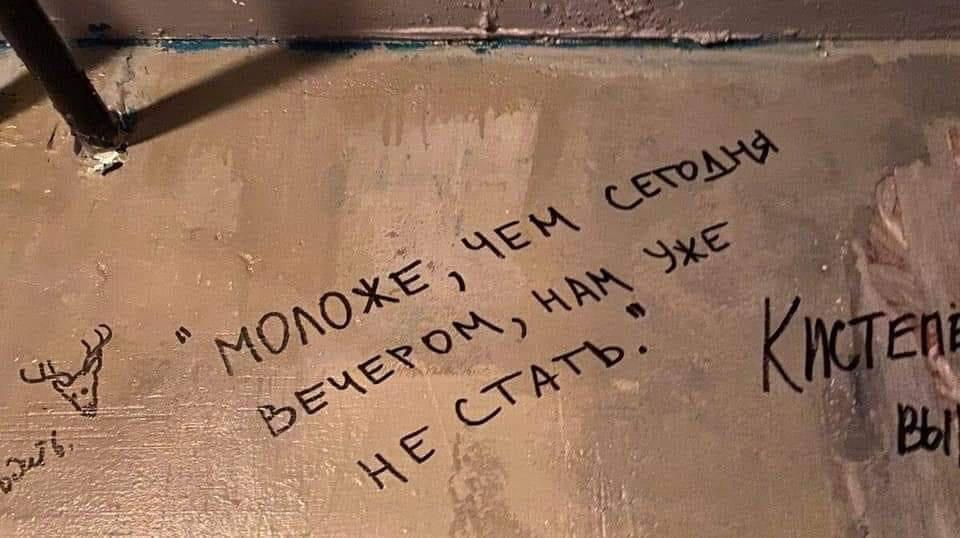 "МОЛОЖЕ, ЧЕМ СЕГОДНЯ
ВЕЧЕРОМ, НАМ УЖЕ
НЕ СТАТЬ."